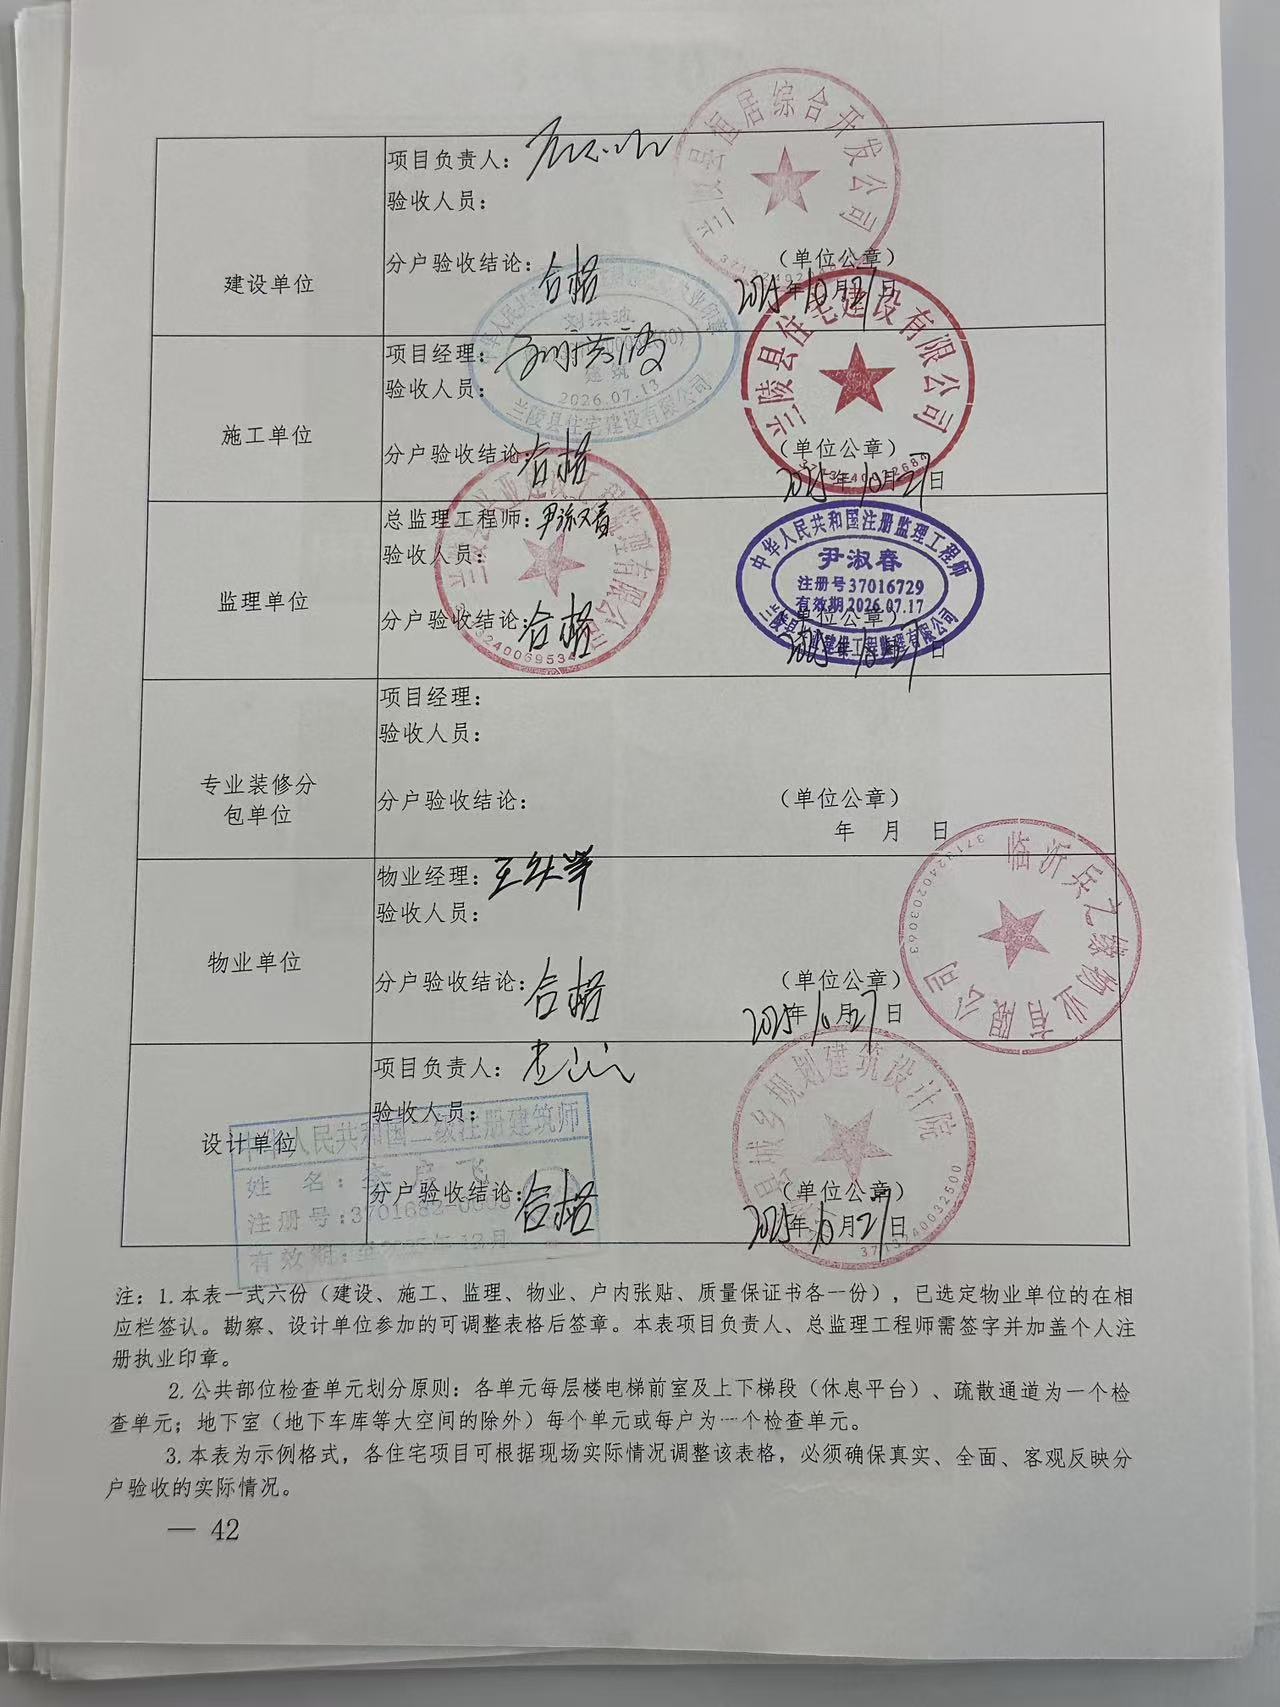 兰陵县恒居综合开发公司
项目负责人:
验收人员:
建设单位
分户验收结论: 合格
(单位公章)
2025年10月27日
刘洪波
建筑
2026.07.13
兰陵县住宅建设有限公司
兰陵县住宅建设有限公司
项目经理: 刘洪波
验收人员:
施工单位
分户验收结论: 合格
(单位公章)
2025年10月27日
总监理工程师: 尹淑春
验收人员:
监理单位
中华人民共和国注册监理工程师
尹淑春
注册号37016729
有效期2026.07.17
分户验收结论: 合格
(单位公章)
2025年10月27日
项目经理:
验收人员:
专业装修分
包单位
分户验收结论:
(单位公章)
年 月 日
临沂兵之缘物业有限公司
3713240203063
物业经理:
验收人员:
物业单位
分户验收结论: 合格
(单位公章)
2025年10月27日
项目负责人:
验收人员:
设计单位
县城乡规划建筑设计院
3713240032500
中华人民共和国二级注册建筑师
姓 名:
注册号:
有效期:
分户验收结论: 合格
(单位公章)
2025年10月27日
注: 1.本表一式六份(建设、施工、监理、物业、户内张贴、质量保证书各一份),已选定物业单位的在相
应栏签认。勘察、设计单位参加的可调整表格后签章。本表项目负责人、总监理工程师需签字并加盖个人注
册执业印章。
2.公共部位检查单元划分原则:各单元每层楼电梯前室及上下梯段(休息平台)、疏散通道为一个检
查单元;地下室(地下车库等大空间的除外)每个单元或每户为一个检查单元。
3.本表为示例格式,各住宅项目可根据现场实际情况调整该表格,必须确保真实、全面、客观反映分
户验收的实际情况。
— 42